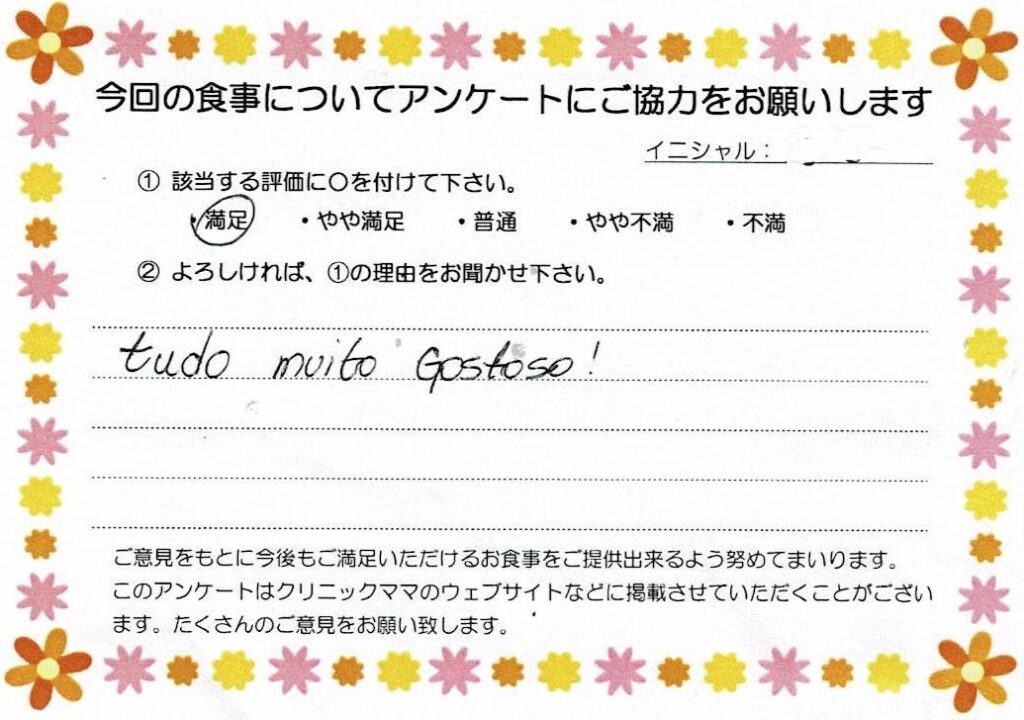 今回の食事についてアンケートにご協力をお願いします
イニシャル：
① 該当する評価に〇を付けて下さい。
・満足 ・やや満足 ・普通 ・やや不満 ・不満
② よろしければ、①の理由をお聞かせ下さい。
tudo muito Gostoso!
ご意見をもとに今後もご満足いただけるお食事をご提供出来るよう努めてまいります。
このアンケートはクリニックママのウェブサイトなどに掲載させていただくことがござい
ます。たくさんのご意見をお願い致します。